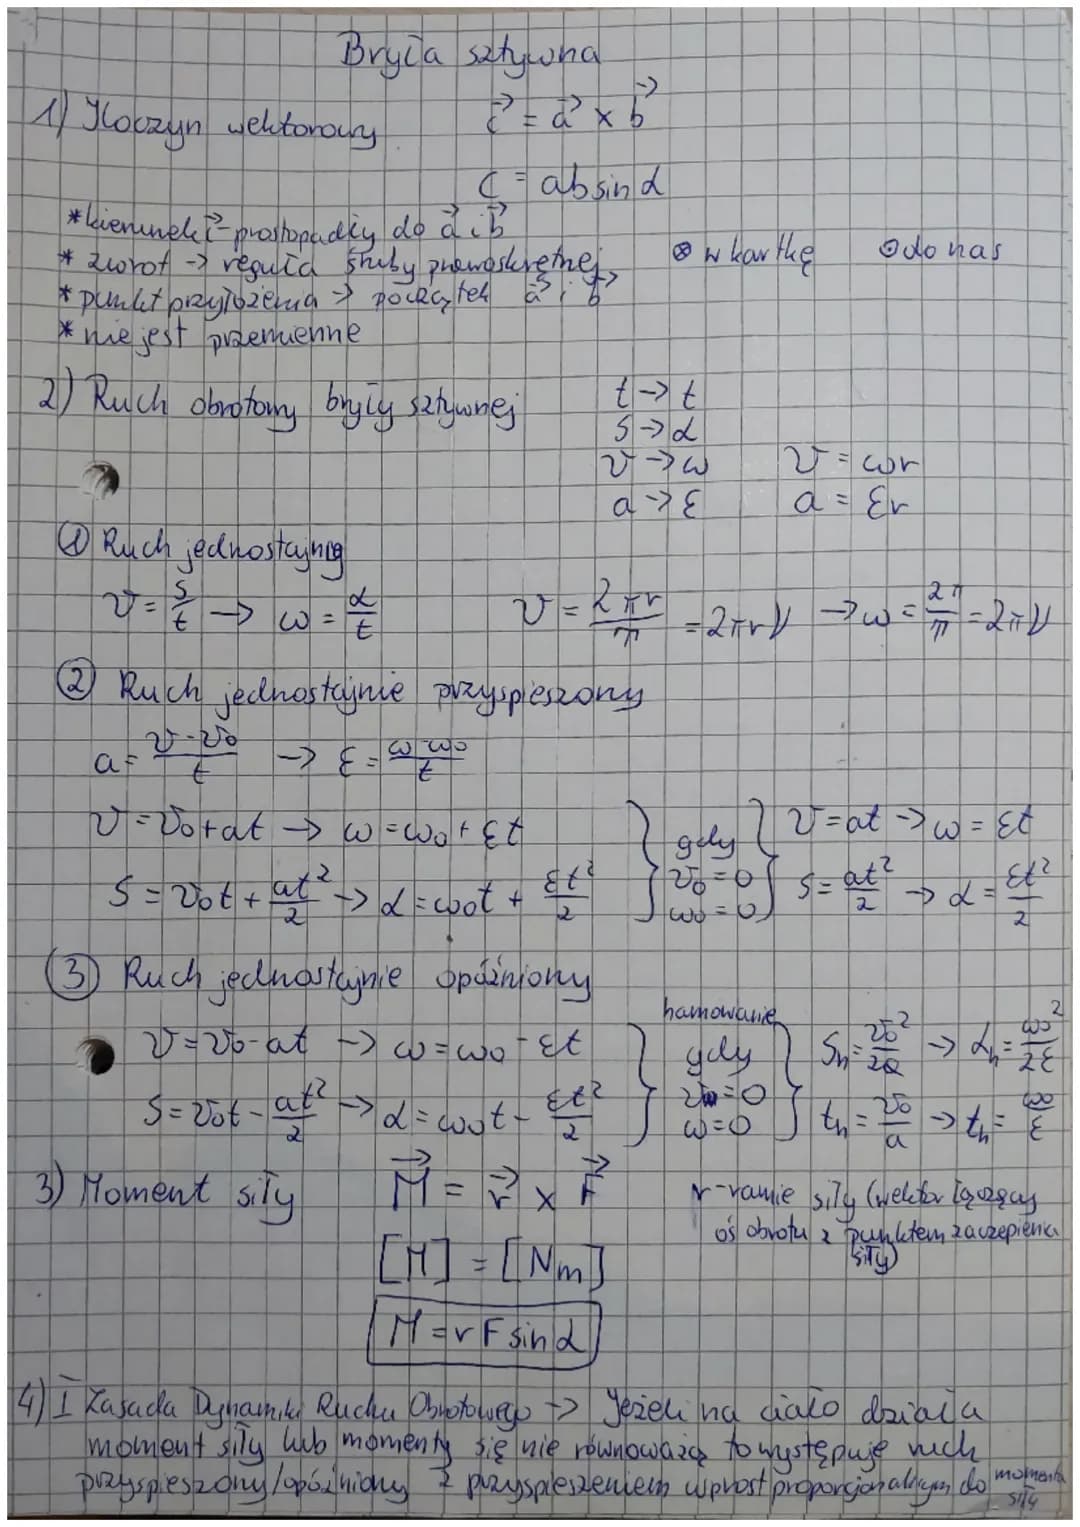 Bryła sztywna
1) Iloczyn wektorowy c⃗ = a⃗ × b⃗
c = ab sin α
* kierunek c⃗ - prostopadły do a⃗ i b⃗
* zwrot → reguła śruby prawoskrętnej ⊗ w kartkę ⊙ do nas
* punkt przyłożenia → początek a⃗ i b⃗
* nie jest przemienne
2) Ruch obrotowy bryły sztywnej t → t
s → α
v → ω v = ωr
a → ε a = εr
① Ruch jednostajny
v = s/t → ω = α/t v = 2πr/π = 2πrν → ω = 2π/π = 2πν
② Ruch jednostajnie przyspieszony
a = (v - v₀)/t → ε = (ω - ω₀)/t
v = v₀ + at → ω = ω₀ + εt } gdy } v = at → ω = εt
s = v₀t + at²/2 → α = ω₀t + εt²/2 } v₀ = 0 } s = at²/2 → α = εt²/2
ω₀ = 0
③ Ruch jednostajnie opóźniony
hamowanie
v = v₀ - at → ω = ω₀ - εt } gdy } sₕ = v₀²/2a → αₕ = ω₀²/2ε
v = 0
s = v₀t - at²/2 → α = ω₀t - εt²/2 } ω = 0 } tₕ = v₀/a → tₕ = ω₀/ε
3) Moment siły M⃗ = r⃗ × F⃗ r - ramie siły (wektor łączący
oś obrotu z punktem zaczepienia
siły)
[M] = [Nm]
M = rF sin α
4) I Zasada Dynamiki Ruchu Obrotowego → Jeżeli na ciało działa
moment siły lub momenty się nie równoważą to występuje ruch
przyspieszony/opóźniony z przyspieszeniem wprost proporcjonalnym do momentu
siły